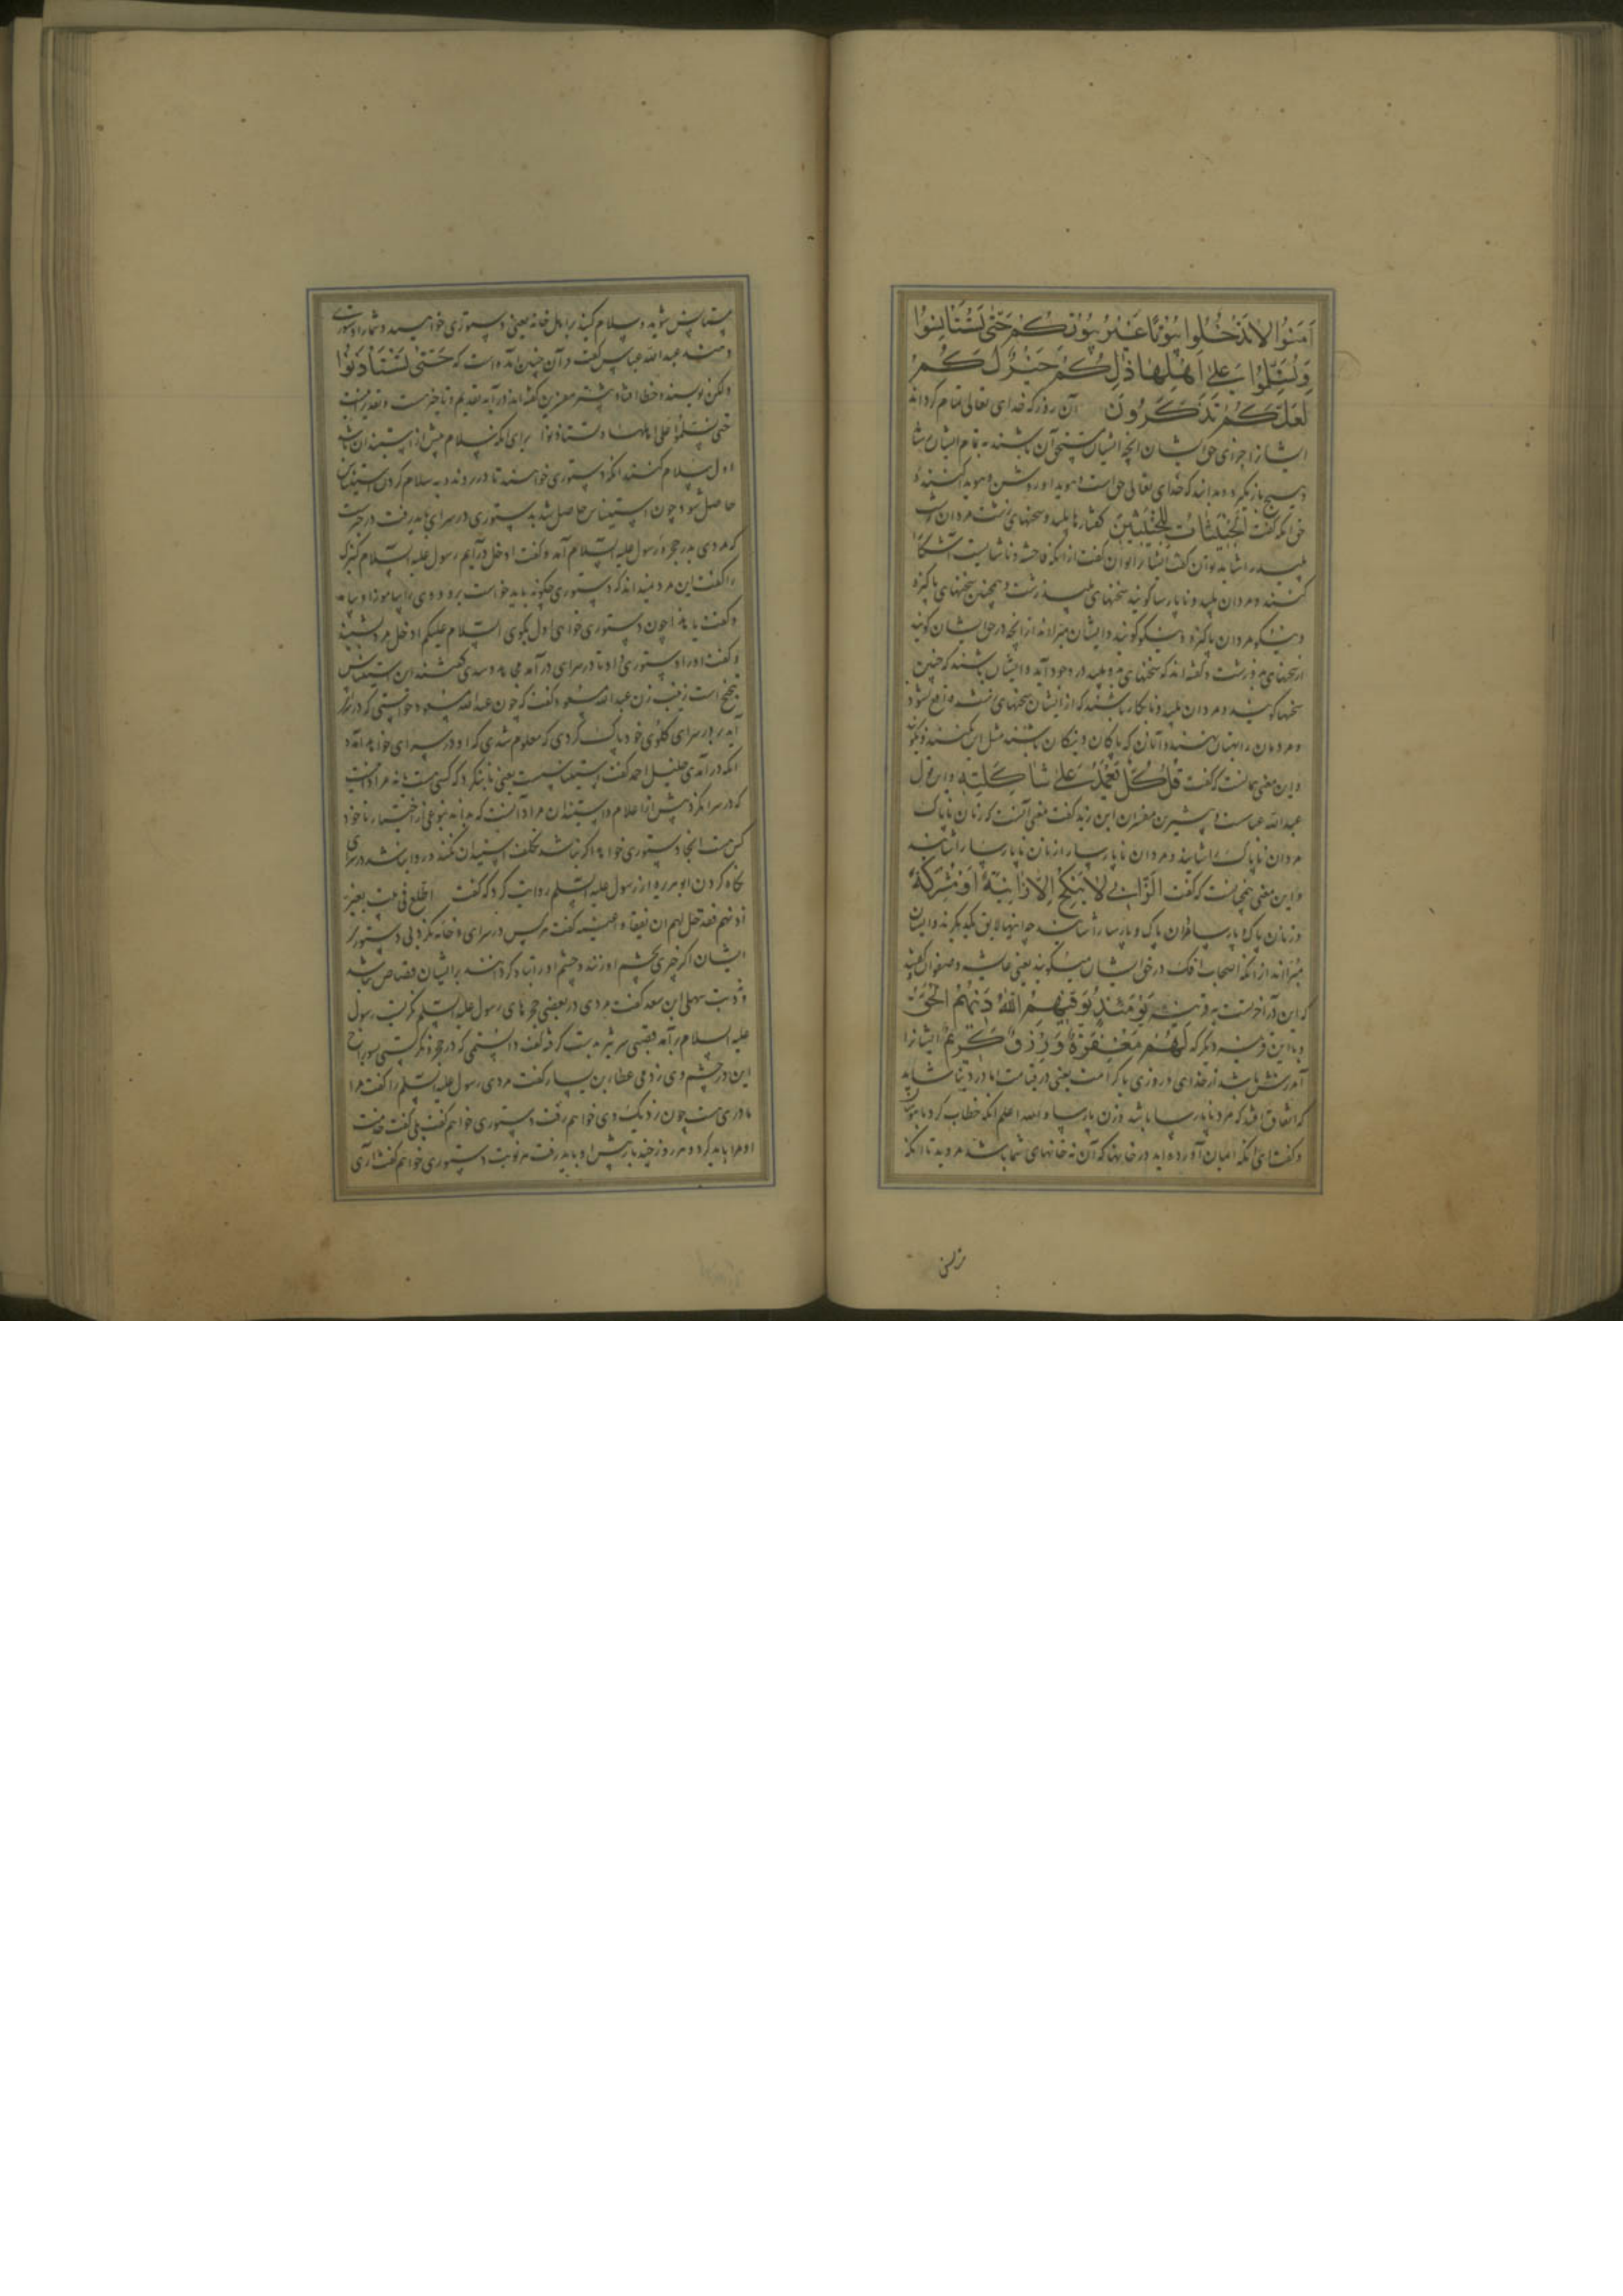 آمَنُوا لَا تَدْخُلُوا بُيُوتًا غَيْرَ بُيُوتِكُمْ حَتَّى تَسْتَأْنِسُوا
وَتُسَلِّمُوا عَلَى أَهْلِهَا ذَلِكُمْ خَيْرٌ لَكُمْ
لَعَلَّكُمْ تَذَكَّرُونَ آن روز که خدای تعالی تمام کرداند
ایشانرا جزای حق ایشان انچه ایشان مستحق آن باشند
و هیچ باز نکیرد و بدانند که خدای تعالی حق است
حق انکه کفت الْخَبِيثَاتُ لِلْخَبِيثِينَ کفتارها پلید و سخنهای زشت مردان
پلید را شاید
کنند و مردان پلید و ناپارسا کویند سخنهای پلید و زشت و همچنین سخنهای پاکیزه
و نیکو مردان پاکیزه و نیکو کویند و ایشان مبرااند از انچه در حق ایشان کویند
از سخنهای زشت و کفته اند که سخنهای پلید در وجود آید و ایشان باشند که چنین
سخنها کویند و مردان پلید و نابکار باشند که از ایشان سخنهای
و مردمان را بهتان نهند و آنان که پاکان و نیکان باشند مثل این نکنند و نکویند
و این معنی همانست که کفت قُلْ كُلٌّ يَعْمَلُ عَلَى شَاكِلَتِهِ و این قول
عبدالله عباست و بیشترین مفسران ابن زید کفت معنی آنست که زنان ناپاک
مردان ناپاک را شایند و مردان ناپارسا از زنان ناپارسا را شایند
و این معنی همچنانست که کفت الزَّانِي لَا يَنْكِحُ إِلَّا زَانِيَةً أَوْ مُشْرِكَةً
و زنان پاک و پارسا مردان پاک و پارسا را شایند چه اینها لایق یکدیکرند و ایشان
مبرااند از انکه اصحاب افک در حق ایشان میکویند یعنی عایشه و صفوان
که این در آخرتست يَوْمَئِذٍ يُوَفِّيهِمُ اللَّهُ دِينَهُمُ الْحَقَّ
و باین قرینه دیکر که لَهُمْ مَغْفِرَةٌ وَرِزْقٌ كَرِيمٌ ایشانرا
آمرزش باشد از خدای و روزی با کرامت یعنی در قیامت اما در دنیا شاید
که اتفاق افتد که مرد ناپارسا باشد و زن پارسا والله اعلم انکه خطاب کرد با مؤمنان
و کفت ای انکه ایمان آورده اید در خانها که آن نه خانهای شما باشد مروید تا انکه
مستأنس شوید و سلام کنید بر اهل خانه یعنی دستوری خواهید و شما را دستوری
دهند عبدالله عباس کفت در آن چنین آمده است که حَتَّى تَسْتَأْذِنُوا
و لکن نویسنده خطا افتاد و بیشتر مفسرین کفته اند در آیه تقدیم و تاخیرست و تقدیر آنست
حتی تسلموا علی اهلها و تستاذنوا برای انکه سلام پیش از استیذان باشد
اول سلام کنند انکه دستوری خواهند تا در روند و به سلام کردن استیناس
حاصل شود و چون استیناس حاصل شد بدستوری در سرای باید رفت در خبرست
که مردی بدر حجره رسول علیه السلام آمد و کفت ادخل درآیم رسول علیه السلام کنیزک
را کفت این مرد نمیداند که دستوری چکونه باید خواست برو و وی را بیاموز
و کفت یا هذا چون دستوری خواهی اول بکوی السلام علیکم ادخل مرد بشنید
و کفت او را دستوری داد تا در سرای درآمد مجاهد و سدی کفتند این استیناس
تنحنح است زینب زن عبدالله مسعود کفت که چون عبدالله مسعود خواستی که در سرای
آید بر در سرای کلوی خود پاک کردی که معلوم شدی که او در سرای خواهد آمد
انکه درآمدی خلیل احمد کفت استیناس
که در سرا نکرد پیش از اعلام و استیذان مراد آنست که
کس هست انجا دستوری خواهد اکر نباشد تکلف استیذان نکند و روا نباشد در سرای
نکاه کردن ابوهریره از رسول علیه السلم روایت کرد که کفت من اطلع فی بیت بغیر
اذنهم فقد حل لهم ان یفقاوا عینیه کفت هر کس در سرای و خانه نکرد بی دستوری
ایشان اکر چیزی بچشم او زنند و چشم او را تباه کردانند بر ایشان قصاص نباشد
سهل ابن سعد کفت مردی در بعضی حجره های رسول علیه السلم نکریست رسول
علیه السلام برآمد قضیبی سر تیز بدست کرفته کفت دانستمی که در حجره نکرستی
این در چشم وی زدمی عطاء بن یسار کفت مردی رسول علیه السلم را کفت مرا
مادری هست چون نزدیک وی خواهم رفت دستوری خواهم کفت بلی کفت خدمت
او مرا باید کرد و هر روز چند بار پیش او باید رفت هر نوبت دستوری خواهم کفت آری